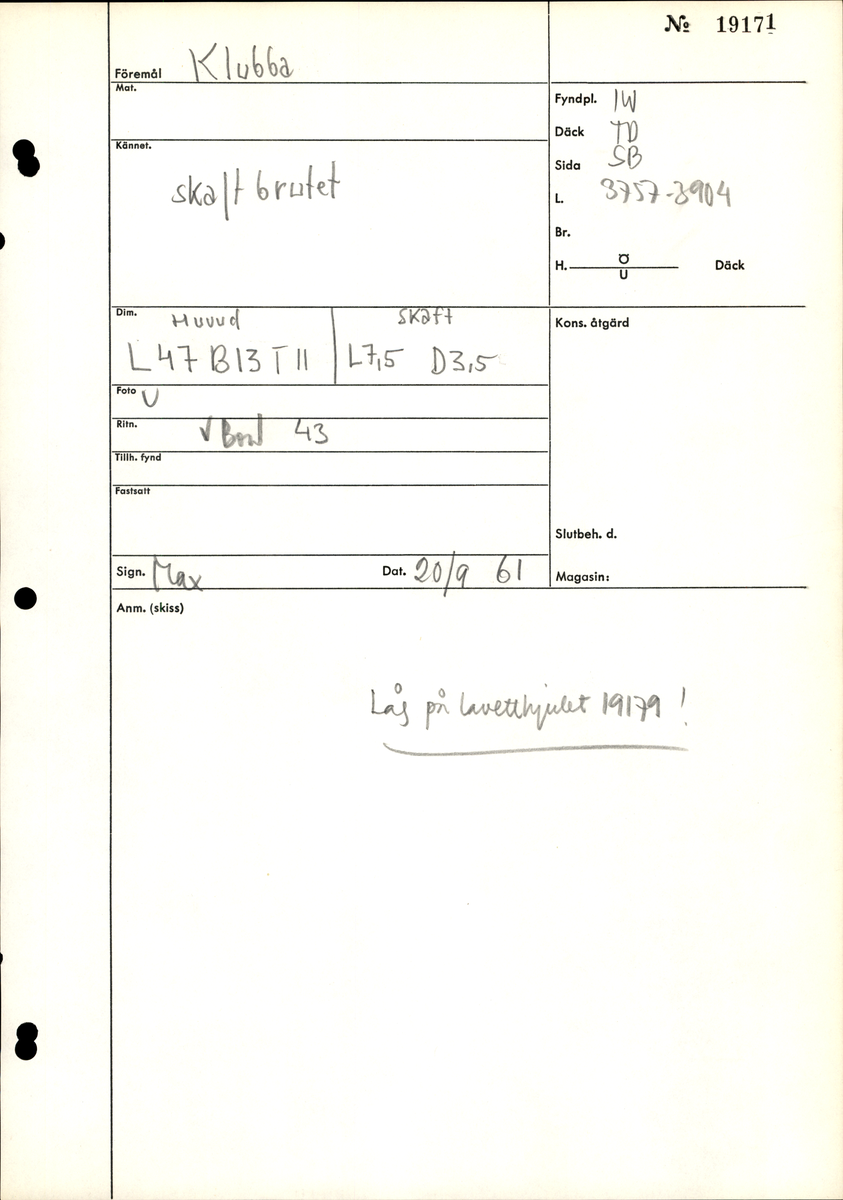 № 19171
Föremål Klubba
Mat.
Fyndpl. IW
Däck TD
Kännet.
Sida SB
skaft brutet
L. 3757-3904
Br.
H. Ö Däck
U
Dim. Huvud skaft
L 47 B 13 T 11 L 7,5 D 3,5
Kons. åtgärd
Foto V
Ritn. V Bord 43
Tillh. fynd
Fastsatt
Slutbeh. d.
Sign. Max Dat. 20/9 61
Magasin:
Anm. (skiss)
Låg på lavetthjulet 19179 !